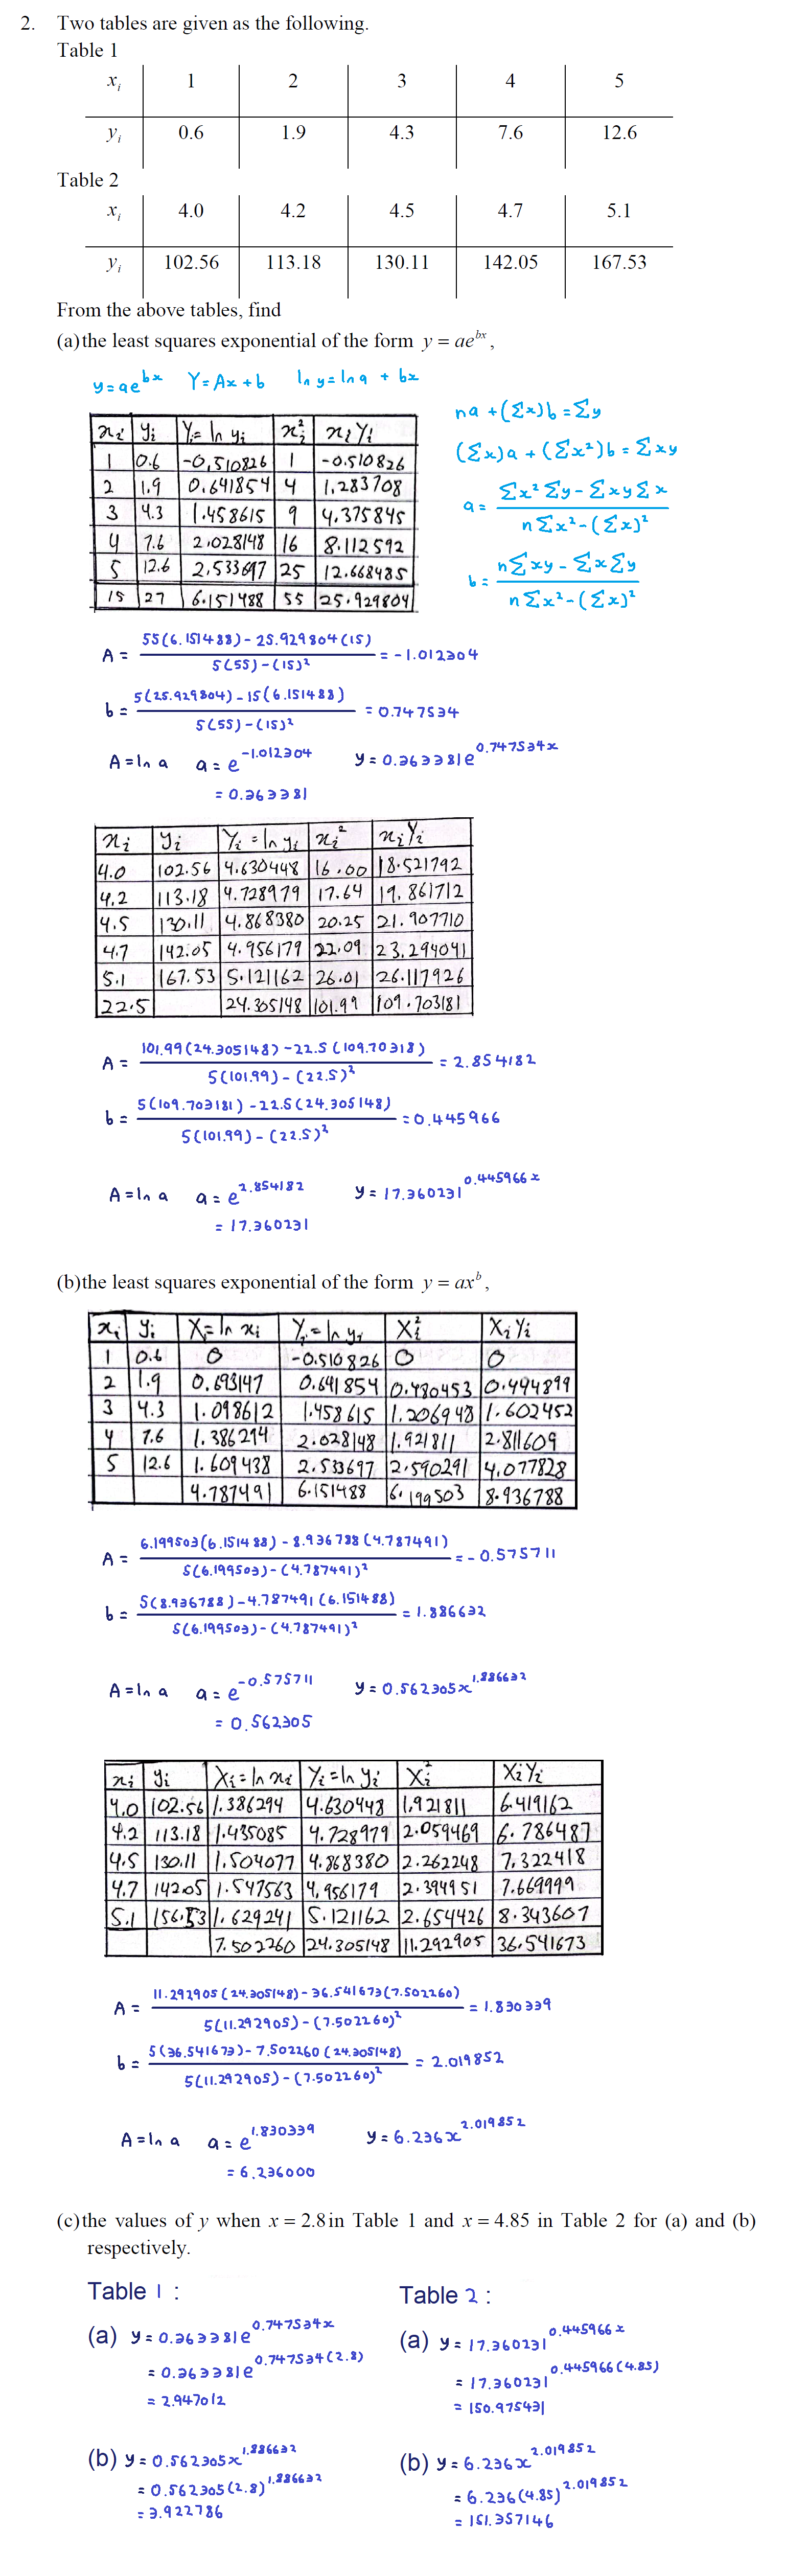 2. Two tables are given as the following.
Table 1
xᵢ 1 2 3 4 5
yᵢ 0.6 1.9 4.3 7.6 12.6
Table 2
xᵢ 4.0 4.2 4.5 4.7 5.1
yᵢ 102.56 113.18 130.11 142.05 167.53
From the above tables, find
(a)the least squares exponential of the form y = ae^{bx},
y=ae^{bx} Y=Ax+b ln y=ln a + bx
na +(Σx)b =Σy
(Σx)a + (Σx²)b = Σxy
a= (Σx²Σy - ΣxyΣx) / (nΣx² - (Σx)²)
b= (nΣxy - ΣxΣy) / (nΣx² - (Σx)²)
xᵢ yᵢ Yᵢ= ln yᵢ xᵢ² xᵢYᵢ
1 0.6 -0.510826 1 -0.510826
2 1.9 0.641854 4 1.283708
3 4.3 1.458615 9 4.375845
4 7.6 2.028148 16 8.112592
5 12.6 2.533697 25 12.668485
15 27 6.151488 55 25.929804
A = (55(6.151488) - 25.929804(15)) / (5(55) - (15)²) = -1.012304
b = (5(25.929804) - 15(6.151488)) / (5(55) - (15)²) = 0.747534
A = ln a a = e^{-1.012304} y = 0.363381e^{0.747534x}
= 0.363381
xᵢ yᵢ Yᵢ = ln yᵢ xᵢ² xᵢYᵢ
4.0 102.56 4.630448 16.00 18.521792
4.2 113.18 4.728979 17.64 19.861712
4.5 130.11 4.868380 20.25 21.907710
4.7 142.05 4.956179 22.09 23.294041
5.1 167.53 5.121162 26.01 26.117926
22.5 24.305148 101.99 109.703181
A = (101.99(24.305148) - 22.5(109.70318)) / (5(101.99) - (22.5)²) = 2.854182
b = (5(109.703181) - 22.5(24.305148)) / (5(101.99) - (22.5)²) = 0.445966
A = ln a a = e^{2.854182} y = 17.360231^{0.445966x}
= 17.360231
(b)the least squares exponential of the form y = ax^b,
xᵢ yᵢ Xᵢ= ln xᵢ Yᵢ = ln yᵢ Xᵢ² XᵢYᵢ
1 0.6 0 -0.510826 0 0
2 1.9 0.693147 0.641854 0.480453 0.444899
3 4.3 1.098612 1.458615 1.206948 1.602452
4 7.6 1.386294 2.028148 1.921811 2.811609
5 12.6 1.609438 2.533697 2.590291 4.077828
4.787491 6.151488 6.199503 8.936788
A = (6.199503(6.151488) - 8.936788(4.787491)) / (5(6.199503) - (4.787491)²) = -0.575711
b = (5(8.936788) - 4.787491(6.151488)) / (5(6.199503) - (4.787491)²) = 1.886632
A = ln a a = e^{-0.575711} y = 0.562305x^{1.886632}
= 0.562305
xᵢ yᵢ Xᵢ=ln xᵢ Yᵢ=ln yᵢ Xᵢ² XᵢYᵢ
4.0 102.56 1.386294 4.630448 1.921811 6.419162
4.2 113.18 1.435085 4.728979 2.059469 6.786487
4.5 130.11 1.504077 4.868380 2.262248 7.322418
4.7 142.05 1.547563 4.956179 2.394951 7.669999
5.1 156.53 1.629241 5.121162 2.654426 8.343607
7.502260 24.305148 11.292905 36.541673
A = (11.292905(24.305148) - 36.541673(7.502260)) / (5(11.292905) - (7.502260)²) = 1.830339
b = (5(36.541673) - 7.502260(24.305148)) / (5(11.292905) - (7.502260)²) = 2.019852
A = ln a a = e^{1.830339} y = 6.236x^{2.019852}
= 6.236000
(c)the values of y when x = 2.8 in Table 1 and x = 4.85 in Table 2 for (a) and (b)
respectively.
Table 1 :
(a) y = 0.363381e^{0.747534x}
= 0.363381e^{0.747534(2.8)}
= 2.947012
(b) y = 0.562305x^{1.886632}
= 0.562305(2.8)^{1.886632}
= 3.922786
Table 2 :
(a) y = 17.360231^{0.445966x}
= 17.360231^{0.445966(4.85)}
= 150.975431
(b) y = 6.236x^{2.019852}
= 6.236(4.85)^{2.019852}
= 151.357146